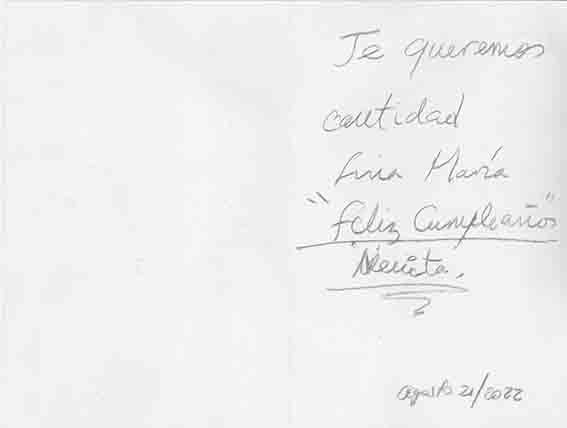 Te queremos
cantidad
Lina María
"Feliz Cumpleaños"
agosto 21/2022